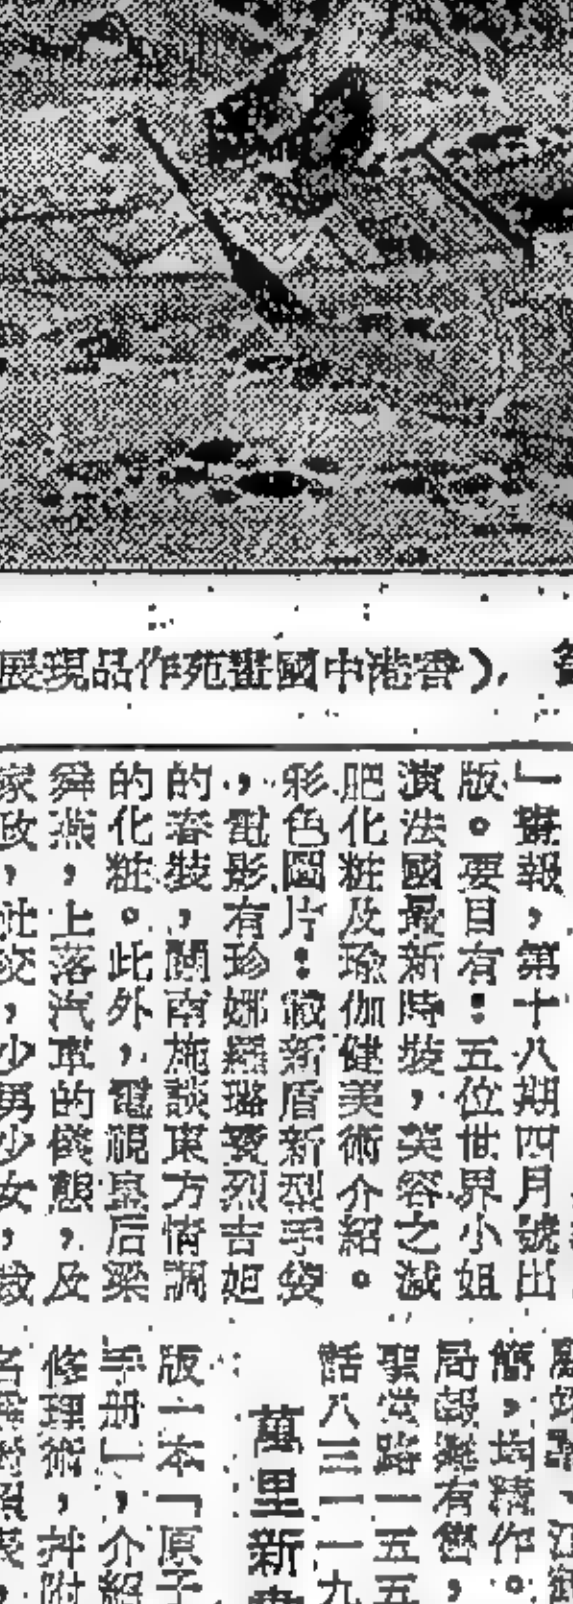 (香港中國畫苑作品現展
」畫報,第十八期四月號出
版。要目有:五位世界小姐
演法國最新時裝,美容之減
肥化粧及瑜伽健美術介紹。
彩色圖片:最新盾新型手袋
,電影有珍娜羅璐寶烈吉妲
的春裝,關南施談東方情調
的化粧。此外,電視皇后梁
舜燕,上落汽車的儀態,及
家政,社交,少男少女,裁
簡,均精作。
局報攤有售,
路一五五
話八三一一一九
萬里新
版一本「原子
手册」,介紹
修理術,幷附